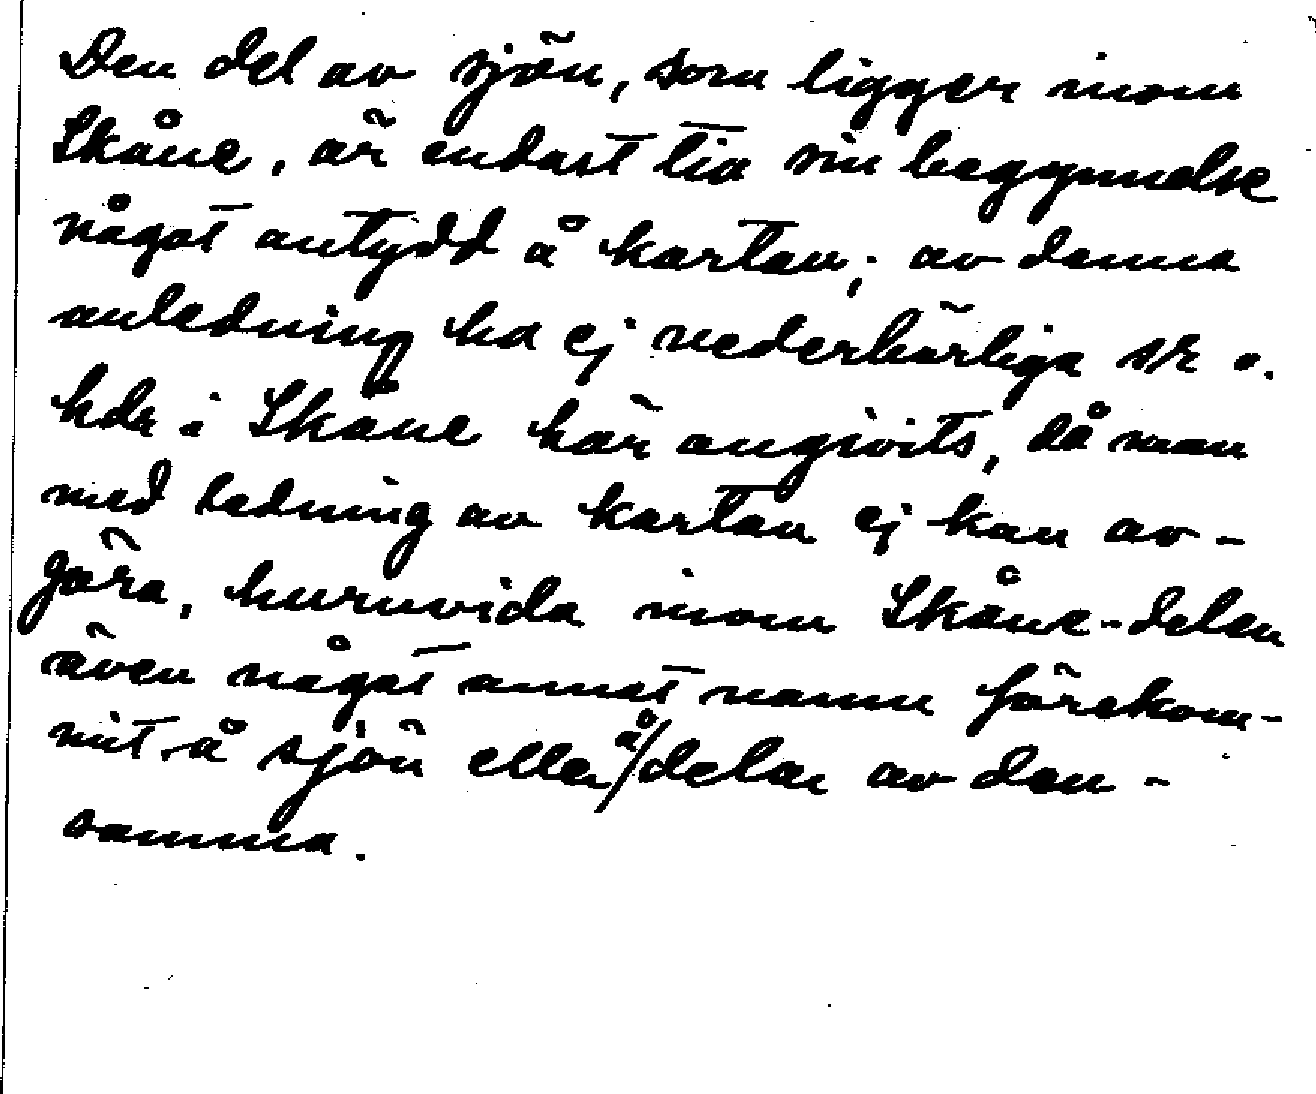 Den del av sjön, som ligger inom
Skåne, är endast till sin begynnelse
något antydd å kartan; av denna
anledning ha ej vederbörliga sk o.
hdr i Skåne här angivits, då man
med ledning av kartan ej kan av-
göra, huruvida inom Skåne-delen
även något annat namn förekom-
mit å sjön eller å delar av den-
samma.